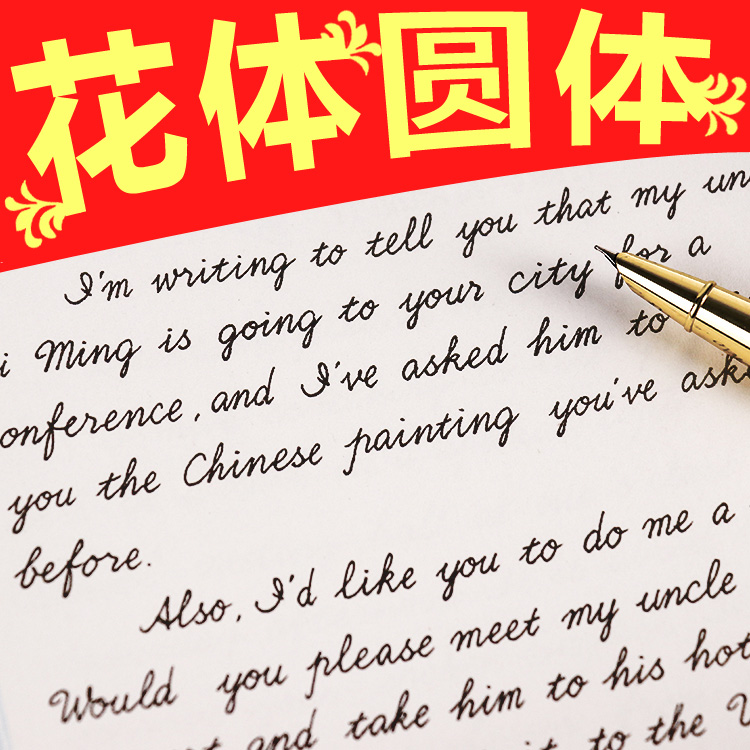 花体圆体
I'm writing to tell you that my
Ming is going to your city for a
and I've asked him to
you the Chinese painting you've
before.
Also, I'd like you to do me a
Would you please meet my uncle
and take him to his
to the